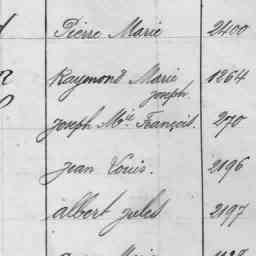 Pierre Marie 2400
Raymond Marie 1264
Joseph.
Joseph Mie François. 270
Jean Louis. 2196
Albert Jules 2197